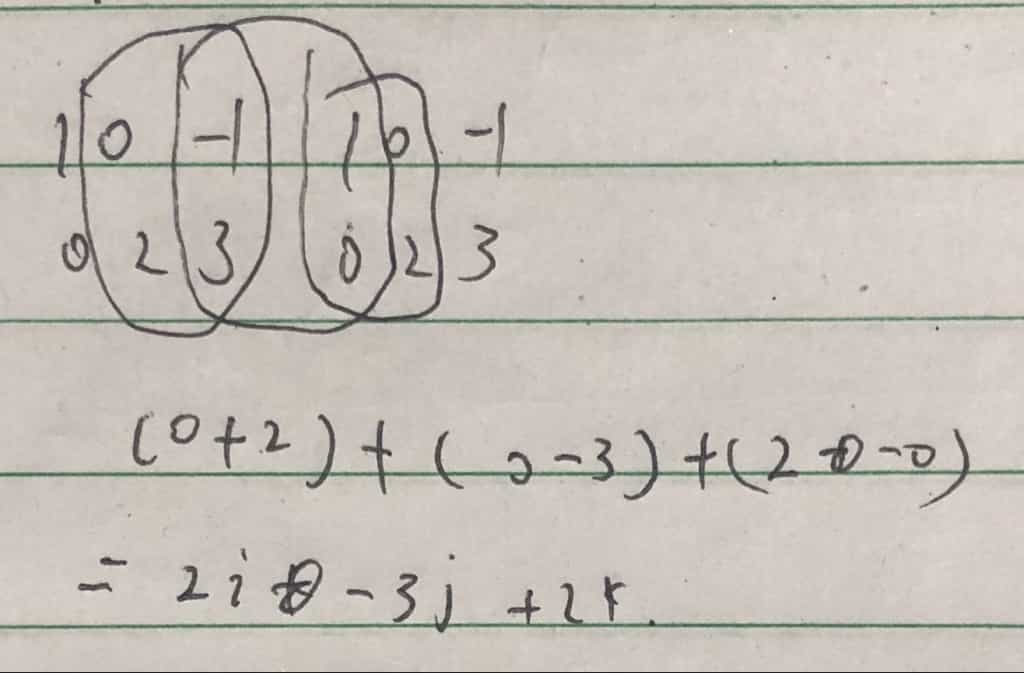 1 0 -1 1 0 -1
0 2 3 0 2 3
(0+2)+(0-3)+(2-0)
= 2i -3j +2k.